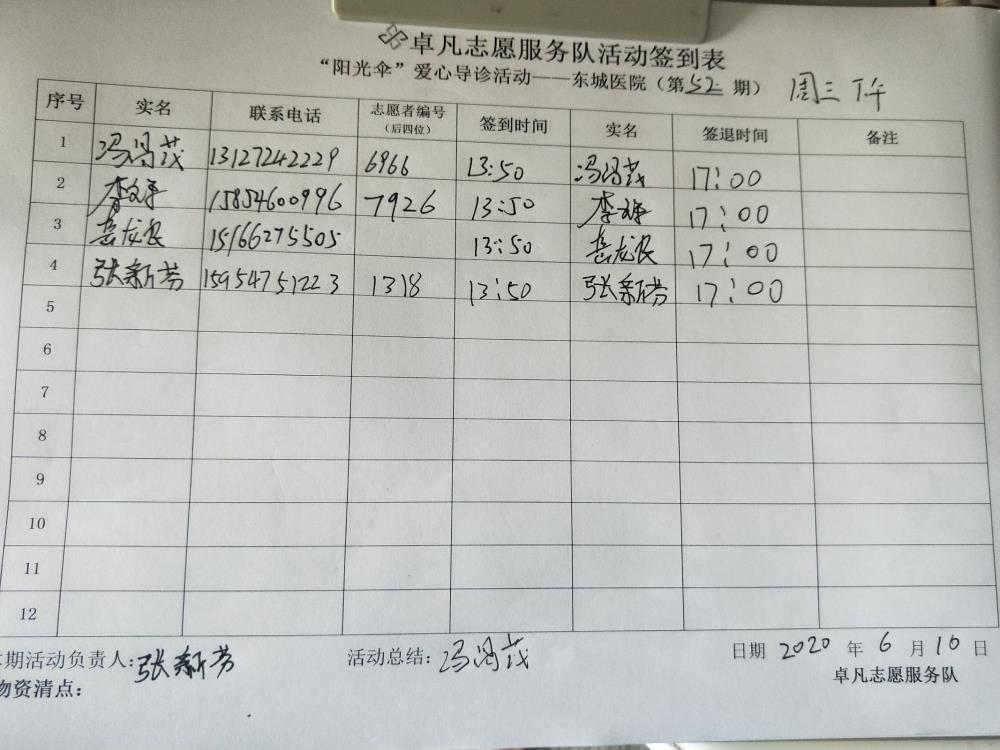 卓凡志愿服务队活动签到表
“阳光伞”爱心导诊活动——东城医院（第52期） 周三 下午
序号 实名 联系电话 志愿者编号（后四位） 签到时间 实名 签退时间 备注
1 冯茂 13127242229 6966 13:50 冯茂 17:00
2 李 15854600996 7926 13:50 李 17:00
3 岳龙 15166275505 13:50 岳龙 17:00
4 张新芳 15954751223 1318 13:50 张新芳 17:00
5
6
7
8
9
10
11
12
期活动负责人：张新芳 活动总结：冯茂 日期 2020 年 6 月 10 日
物资清点： 卓凡志愿服务队